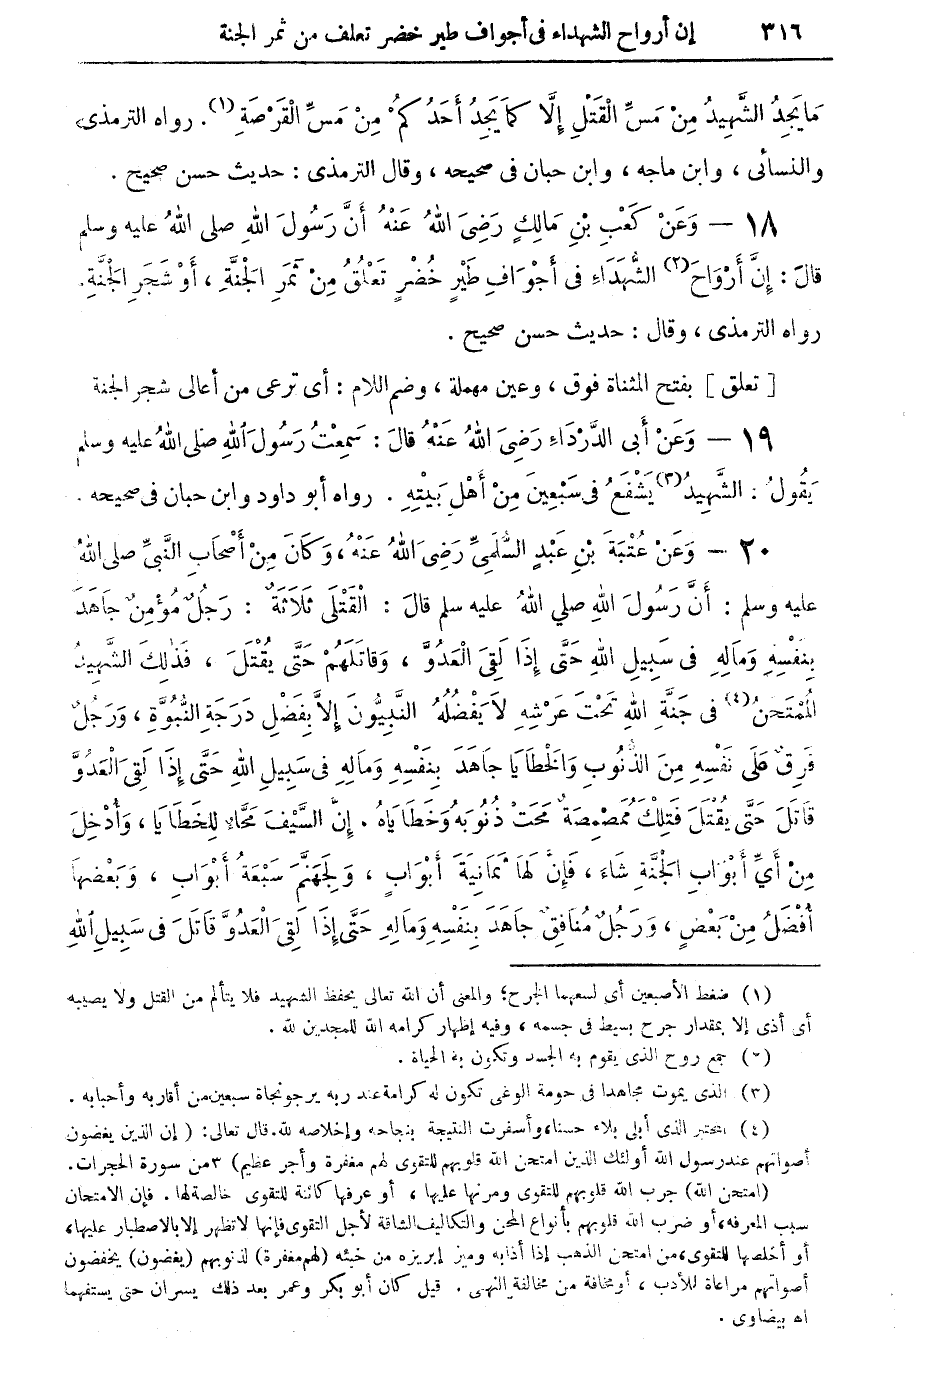 ٣١٦ إن أرواح الشهداء فى أجواف طير خضر تعلف من ثمر الجنة
مَا يَجِدُ الشَّهِيدُ مِنْ مَسِّ الْقَتْلِ إِلَّا كَمَا يَجِدُ أَحَدُكُمْ مِنْ مَسِّ الْقَرْصَةِ(١). رواه الترمذى،
والنسائى ، وابن ماجه ، وابن حبان فى صحيحه ، وقال الترمذى : حديث حسن صحيح .
١٨ — وَعَنْ كَعْبِ بْنِ مَالِكٍ رَضِىَ اللهُ عَنْهُ أَنَّ رَسُولَ اللهِ صلى اللهُ عليه وسلم
قالَ : إِنَّ أَرْوَاحَ(٢) الشُّهَدَاءِ فى أَجْوَافِ طَيْرٍ خُضْرٍ تَعْلُقُ مِنْ ثَمَرِ الْجَنَّةِ ، أَوْ شَجَرِ الْجَنَّةِ.
رواه الترمذى ، وقال : حديث حسن صحيح .
[ تعلق ] بفتح المثناة فوق ، وعين مهملة ، وضم اللام : أى ترعى من أعالى شجر الجنة
١٩ — وَعَنْ أَبى الدَّرْدَاءِ رَضِىَ اللهُ عَنْهُ قالَ : سَمِعْتُ رَسُولَ اللهِ صلى اللهُ عليه وسلم
يَقُولُ : الشَّهِيدُ(٣) يَشْفَعُ فى سَبْعِينَ مِنْ أَهْلِ بَيْتِهِ . رواه أبو داود وابن حبان فى صحيحه .
٢٠ — وَعَنْ عُتْبَةَ بْنِ عَبْدٍ السُّلَمِىِّ رَضِىَ اللهُ عَنْهُ، وَكَانَ مِنْ أَصْحَابِ النَّبِىِّ صلى اللهُ
عليه وسلم : أَنَّ رَسُولَ اللهِ صلي اللهُ عليه سلم قالَ : الْقَتْلَى ثَلَاثَةٌ : رَجُلٌ مُؤْمِنٌ جَاهَدَ
بِنَفْسِهِ وَمَالِهِ فى سَبِيلِ اللهِ حَتَّى إِذَا لَقِىَ الْعَدُوَّ ، وَقَاتَلَهُمْ حَتَّى يُقْتَلَ ، فَذٰلِكَ الشَّهِيدُ
الْمُمْتَحَنُ(٤) فى جَنَّةِ اللهِ تَحْتَ عَرْشِهِ لاَ يَفْضُلُهُ النَّبِيُّونَ إِلاَّ بِفَضْلِ دَرَجَةِ النُّبُوَّةِ ، وَرَجُلٌ
فَرِقٌ عَلَى نَفْسِهِ مِنَ الذُّنُوبِ وَالْخَطَايَا جَاهَدَ بِنَفْسِهِ وَمَالِهِ فى سَبِيلِ اللهِ حَتَّى إِذَا لَقِىَ الْعَدُوَّ
قَاتَلَ حَتَّى يُقْتَلَ فَتِلْكَ مُمَصْمِصَةٌ مَحَتْ ذُنُوبَهُ وَخَطَايَاهُ . إِنَّ السَّيْفَ مَحَّاءٌ لِلْخَطَايَا ، وَأُدْخِلَ
مِنْ أَىِّ أَبْوَابِ الْجَنَّةِ شَاءَ ، فَإِنَّ لَهَا ثَمَانِيَةَ أَبْوَابٍ ، وَلِجَهَنَّمَ سَبْعَةُ أَبْوَابٍ ، وَبَعْضُهَا
أَفْضَلُ مِنْ بَعْضٍ ، وَرَجُلٌ مُنَافِقٌ جَاهَدَ بِنَفْسِهِ وَمَالِهِ حَتَّى إِذَا لَقِىَ الْعَدُوَّ قَاتَلَ فى سَبِيلِ اللهِ
(١) ضغط الأصبعين أى لسعهما الجرح؛ والمعنى أن الله تعالى يحفظ الشهيد فلا يتألم من القتل ولا يصيبه
أى أذى إلا بمقدار جرح بسيط فى جسمه ، وفيه إظهار كرامه الله للمجدين لله .
(٢) جمع روح الذى يقوم به الجسد وتكون به الحياة .
(٣) الذى يموت مجاهدا فى حومة الوغى تكون له كرامة عند ربه يرجو نجاة سبعين من أقاربه وأحبابه .
(٤) المختبر الذى أبلى بلاء حسنا، وأسفرت النتيجة بنجاحه وإخلاصه لله. قال تعالى: ( إن الذين يغضون
أصواتهم عند رسول الله أولئك الذين امتحن الله قلوبهم للتقوى لهم مغفرة وأجر عظيم) ٣ من سورة الحجرات.
(امتحن الله) جرب الله قلوبهم للتقوى ومرنها عليها ، أو عرفها كائنة للتقوى خالصة لها . فإن الامتحان
سبب المعرفه، أو ضرب الله قلوبهم بأنواع المحن والتكاليف الشاقة لأجل التقوى فإنها لا تظهر إلا بالاصطبار عليها،
أو أخلصها للتقوى، من امتحن الذهب إذا أذابه وميز إبريزه من خبثه (لهم مغفرة) لذنوبهم (يغضون) يخفضون
أصواتهم مراعاة للأدب ، أو مخافة من مخالفة النهى . قيل كان أبو بكر وعمر بعد ذلك يسران حتى يستفهما
اه بيضاوى .